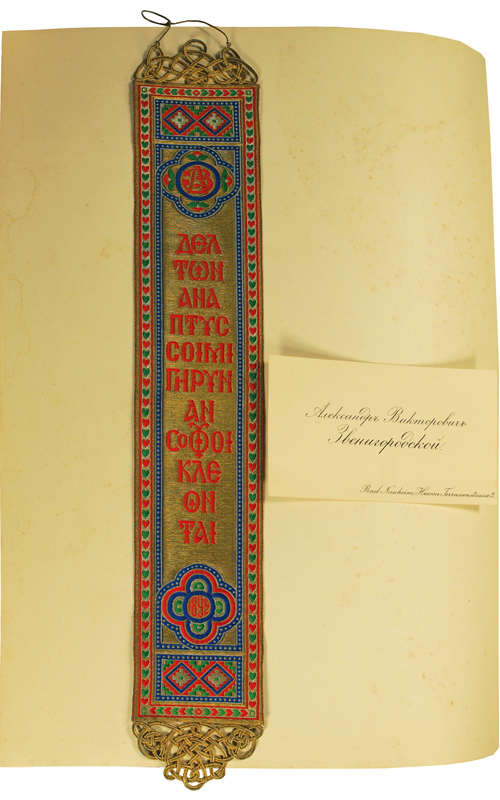 ΔЄΛ
ΤѠΝ
ΑΝΑ
ΠΤΥС
СΟΙΜΙ
ΓΗΡΥΝ
ΑΝ
СΟΦΟΙ
ΚΛΕ
ΟΝ
ΤΑΙ
Александръ Викторовичъ
Звенигородской.
Bad Nauheim, Hessen, Terrassenstrasse 2.